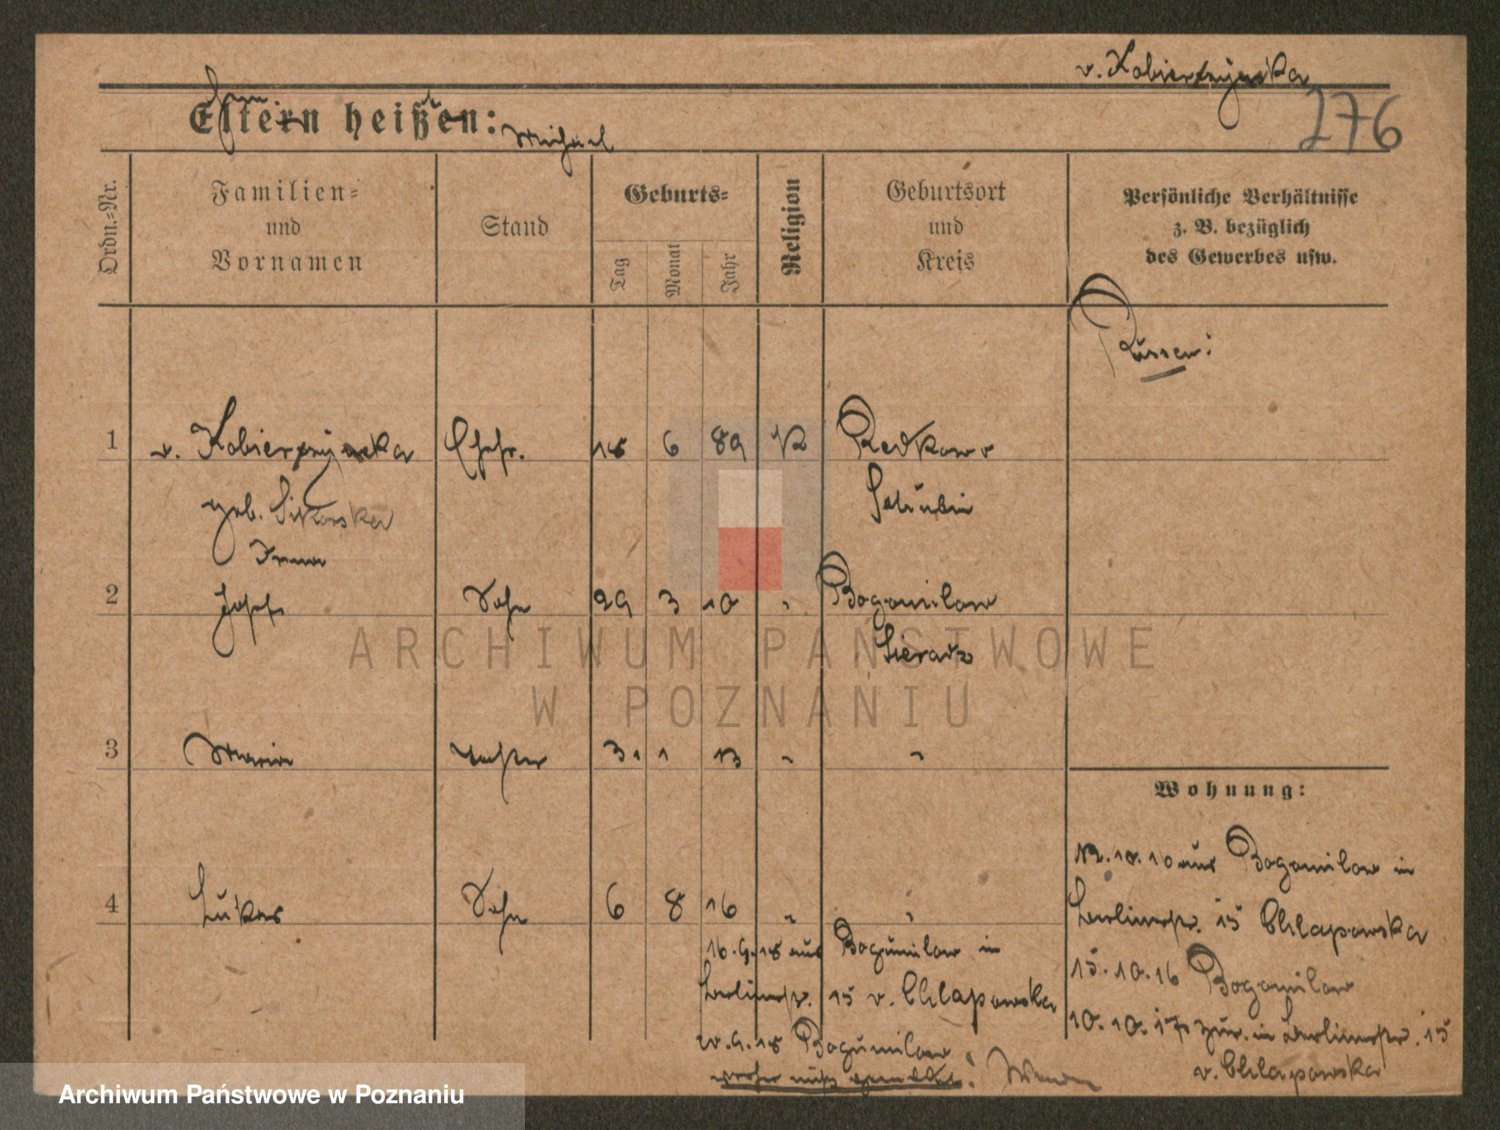 v. Kobierzyńska
276
Eltern heißen:
Michael
Ordn.=Nr.
Familien=
und
Vornamen
Stand
Geburts=
Tag
Monat
Jahr
Religion
Geburtsort
und
Kreis
Persönliche Verhältnisse
z. B. bezüglich
des Gewerbes usw.
Russen:
1 v. Kobierzyńska Ehefr. 18 6 89 K
geb. Sikorska Schubin
2 Josef Sohn 29 3 10 " Bogumilow
Sieradz
3 Maria Tochter 3. 1 13 " "
Wohnung:
4 Lukas Sohn 6 8 16 " "
12.10.10 aus Bogumilow in
Berlinerstr. 15 Chlapowska
15.10.16 Bogumilow
10.10.17 zur. in Berlinerstr. 15
v. Chlapowska
16.9.18 aus Bogumilow in
Berlinerstr. 15 v. Chlapowska
9.18 Bogumilow
ARCHIWUM PAŃSTWOWE
W POZNANIU
Archiwum Państwowe w Poznaniu